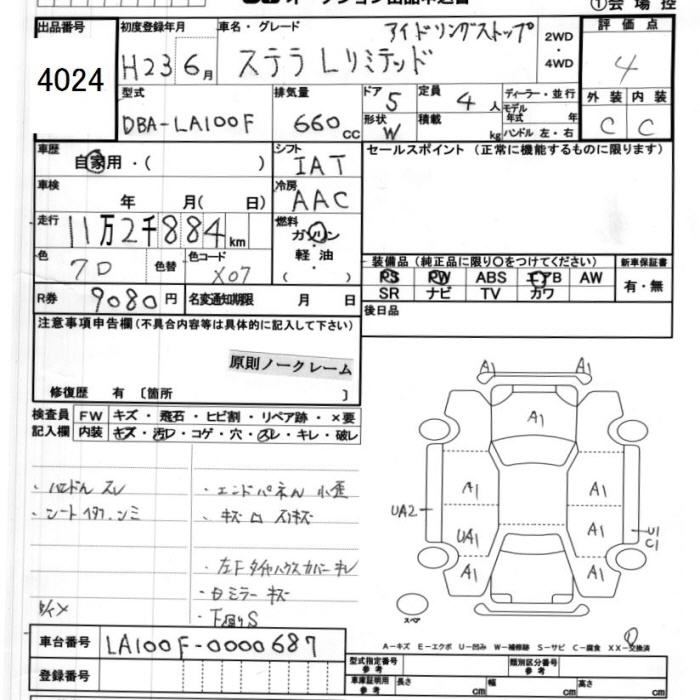 ①会場控
出品番号 初度登録年月 車名・グレード アイドリングストップ 2WD・4WD 評価点
4024 H23 6月 ステラ Lリミテッド 4
型式 排気量 ドア 5 定員 4人 ディーラー・並行 外装 内装
DBA-LA100F 660cc 形状 W 積載 kg モデル年式 年 ハンドル 左・右 C C
車歴 自家用・( ) シフト IAT セールスポイント (正常に機能するものに限ります)
車検 年 月( 日) 冷房 AAC
走行 11万2千884km 燃料 ガソリン・軽油・( )
色 色替 色コード X07 装備品 (純正品に限り○をつけてください) 新車保証書
PS PW ABS エアB AW 有・無
SR ナビ TV カワ
R券 9080円 名変通知期限 月 日 後日品
注意事項申告欄 (不具合内容等は具体的に記入して下さい)
原則ノークレーム
修復歴 有 〔箇所 〕
検査員 FW キズ・飛石・ヒビ割・リペア跡・×要
記入欄 内装 キズ・汚レ・コゲ・穴・スレ・キレ・破レ
A1 A1
A1
・ハンドルスレ ・エンドパネル 小歪
A1 A1
UA2 UA1 A1 U1 C1
・左Fタイヤハウスカバーキレ
A1 A1
・白ミラーキズ
・下廻りS
スペア
車台番号 LA100F-0000687
A-キズ E-エクボ U-凹み W-補修跡 S-サビ C-腐食 XX-交換済
登録番号 型式指定番号 参考 類別区分番号 参考
車庫証明用 参考 長さ cm 幅 cm 高さ cm